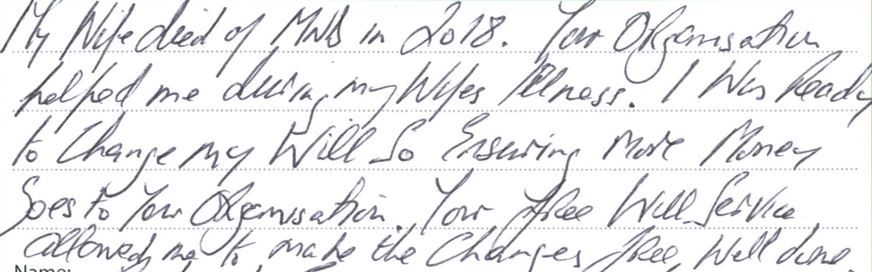 My Wife died of MND in 2018. Your Organisation
helped me during my Wifes Illness. I Was Ready
to Change my Will So Ensuring More Money
Goes to Your Organisation. Your free Will Service
allowed me to make the Changes free, Well done.
Name: